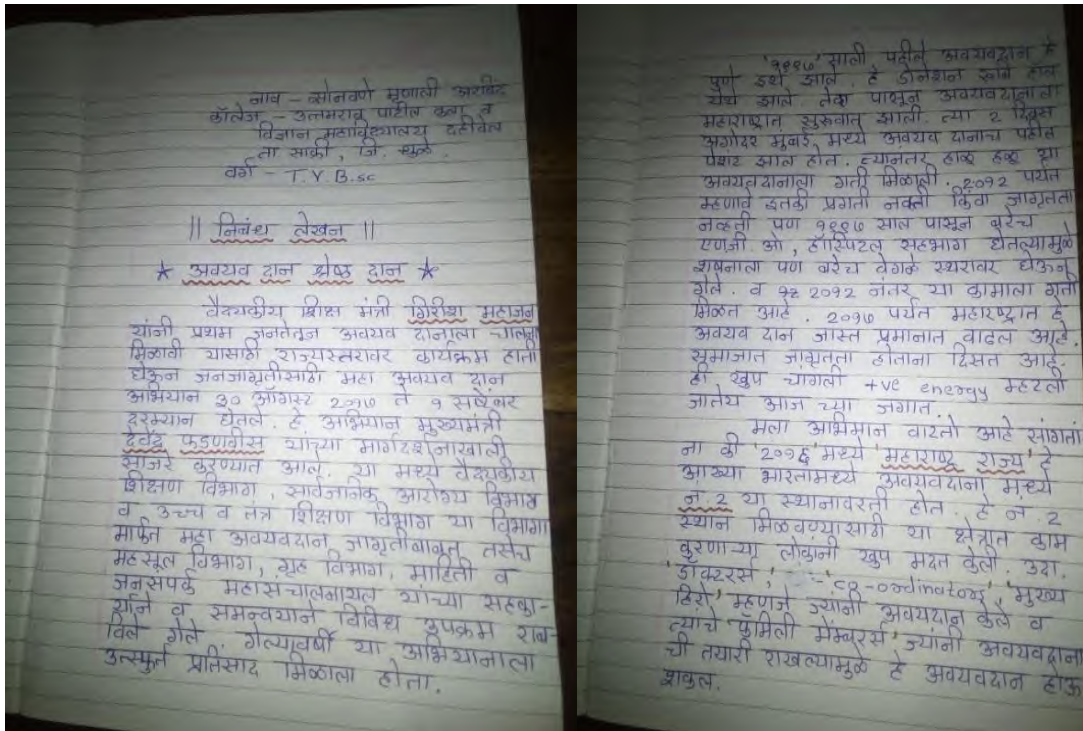 नाव - सोनवणे मृणाली अरविंद
कॉलेज - उत्तमराव पाटील कला व
विज्ञान महाविद्यालय दहीवेल
ता साक्री, जि. धुळे.
वर्ग - T.Y.B.sc
|| निबंध लेखन ||
★ अवयव दान श्रेष्ठ दान ★
वैद्यकीय शिक्ष मंत्री गिरीश महाजन
यांनी प्रथम जनतेतून अवयव दानाला चालना
मिळावी यासाठी राज्यस्तरावर कार्यक्रम हाती
घेऊन जनजागृतीसाठी महा अवयव दान
अभियान ३० ऑगस्ट २०१७ ते १ सप्टेंबर
दरम्यान घेतले. हे अभियान मुख्यमंत्री
देवेंद्र फडणवीस यांच्या मार्गदर्शनाखाली
साजरे करण्यात आले. या मध्ये वैद्यकीय
शिक्षण विभाग, सार्वजनिक आरोग्य विभाग
व उच्च व तंत्र शिक्षण विभाग या विभागा
मार्फत महा अवयवदान जागृतीबाबत तसेच
महसूल विभाग, गृह विभाग, माहिती व
जनसंपर्क महासंचालनालय यांच्या सहका-
र्याने व समन्वयाने विविध उपक्रम राब-
विले गेले. गेल्यावर्षी या अभियानाला
उत्स्फूर्त प्रतिसाद मिळाला होता.
'१९९७' साली पहीले अवयवदान हे
पुणे इथे झाले. हे डोनेशन रूबी हॉल
येथे झाले. तेव्हा पासून अवयवदानाला
महाराष्ट्रात सुरुवात झाली. त्या २ दिवस
अगोदर मुंबई मध्ये अवयव दानाचे पहील
पेशंट झाल होत. त्यानंतर हळू हळू या
अवयवदानाला गती मिळाली. २०१२ पर्यंत
म्हणावे इतकी प्रगती नव्हती किंवा जागृतता
नव्हती पण १९९७ साल पासून बरेच
एणजी. ओ, हॉस्पिटल सहभाग घेतल्यामुळे
शासनाला पण बरेच वेगळे स्थरावर घेऊन
गेले. व २०१२ नंतर या कामाला गती
मिळत आहे. २०१७ पर्यंत महाराष्ट्रात हे
अवयव दान जास्त प्रमानात वाढल आहे.
समाजात जागृतता होताना दिसत आहे.
ही खुप चांगली +ve energy म्हटली
जातेय आज च्या जगात.
मला अभिमान वाटतो आहे सांगतां
ना की '२०१६' मध्ये 'महाराष्ट्र राज्य' हे
आख्या भारतामध्ये अवयवदाना मध्ये
नं. २ या स्थानावरती होत. हे नं. २
स्थान मिळवण्यासाठी या क्षेत्रात काम
करणाऱ्या लोकांनी खुप मदत केली. उदा.
'डॉक्टरर्स', 'co-ordinators', 'मुख्य
हिरो' म्हणजे ज्यांनी अवयदान केले व
त्याचे 'फॅमिली मेंम्बर्स' ज्यांनी अवयवदाना
ची तयारी राखल्यामुळे हे अवयवदान होऊ
शकल.